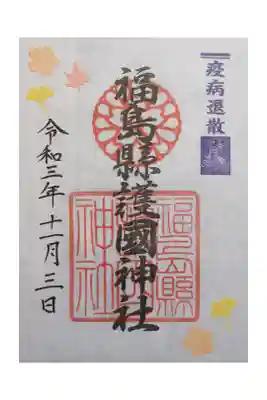 疫病退散
福島縣護國神社
令和三年十一月三日